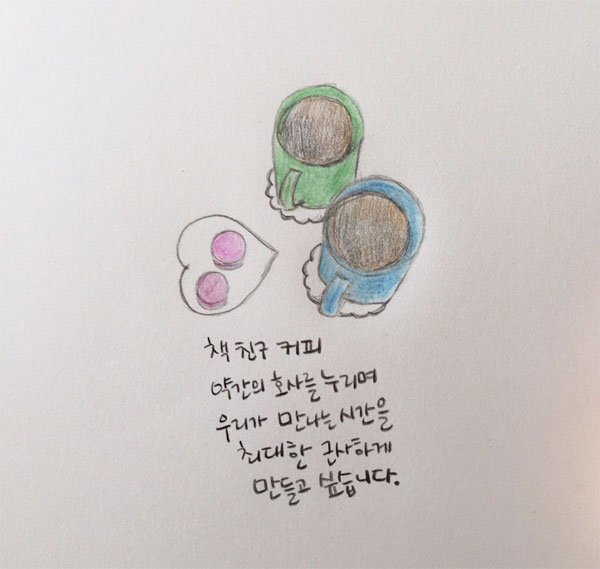 책 친구 커피
약간의 호사를 누리며
우리가 만나는 시간을
최대한 근사하게
만들고 싶습니다.